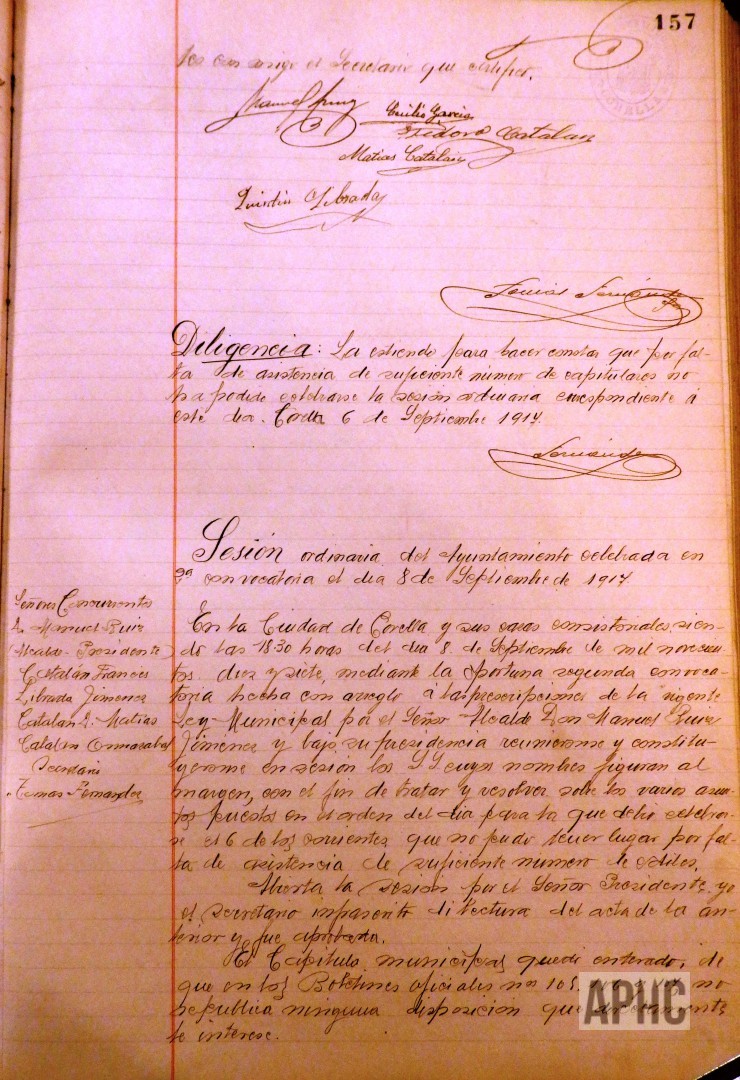 157
que certifico.
Manuel Ruiz
Emilio Garcia
Isidoro Catalan
Matias Catalan
Quintin Librada
Tomas Fernández
Diligencia: La extiendo para hacer constar que por fal-
ta de asistencia de suficiente numero de capitulares no
ha podido celebrarse la sesión ordinaria correspondiente á
este dia. Corella 6 de Septiembre 1917.
Fernández
Sesión ordinaria del Ayuntamiento celebrada en
2ª convocatoria el dia 8 de Septiembre de 1917
Señores Concurrentes
D. Manuel Ruiz
(Alcalde-Presidente)
Catalán Frances
Librada Jimenez
Catalan D. Matias
Catalan
Secretario
Tomas Fernandez
En la Ciudad de Corella y sus casas consistoriales, sien-
do las 18'30 horas del dia 8 de Septiembre de mil novecien-
tos diez y siete, mediante la oportuna segunda convoca-
toria hecha con arreglo á las prescripciones de la vigente
Ley Municipal por el Señor Alcalde Don Manuel Ruiz
Jimenez y bajo su presidencia reunieronse y constitu-
yeronse en sesión los SS cuyos nombres figuran al
margen, con el fin de tratar y resolver sobre los varios asun-
tos puestos en el orden del dia para la que debio celebrar-
se el 6 de los corrientes, que no pudo tener lugar por fal-
ta de asistencia de suficiente numero de ediles.
Abierta la sesión por el Señor Presidente, yo
el secretario di lectura del acta de la an-
terior y fue aprobada.
El Capitulo municipal quedó enterado, de
que en los Boletines oficiales nos 105, no
se publica ninguna disposición que
le interese.
APHC